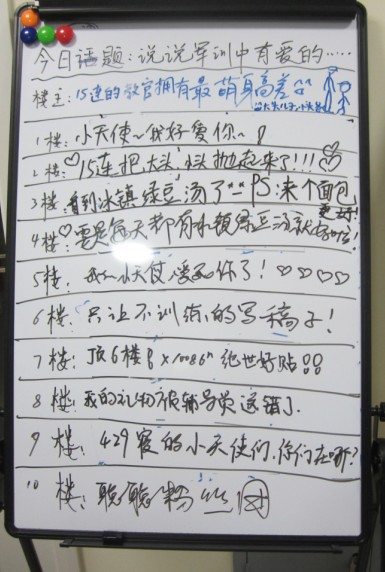 今日话题：说说军训中有爱的……
楼主：15连的教官拥有最萌身高差
1楼：小天使~我好爱你~
2楼：♡15连把大头、小头抛起来了!!!
3楼：看到冰镇绿豆汤了 PS来个面包
更好!
4楼：♡要是每天都有冰镇绿豆汤就好了!
5楼：我的小天使,爱死你了！♡♡♡♡
6楼：只让不训练的写稿子！
7楼：顶6楼 ×10086ⁿ 绝世好贴!!
8楼：我的礼物被辅导员送错了.
9楼：429寝的小天使们,你们在哪?
10楼：聪聪粉丝团